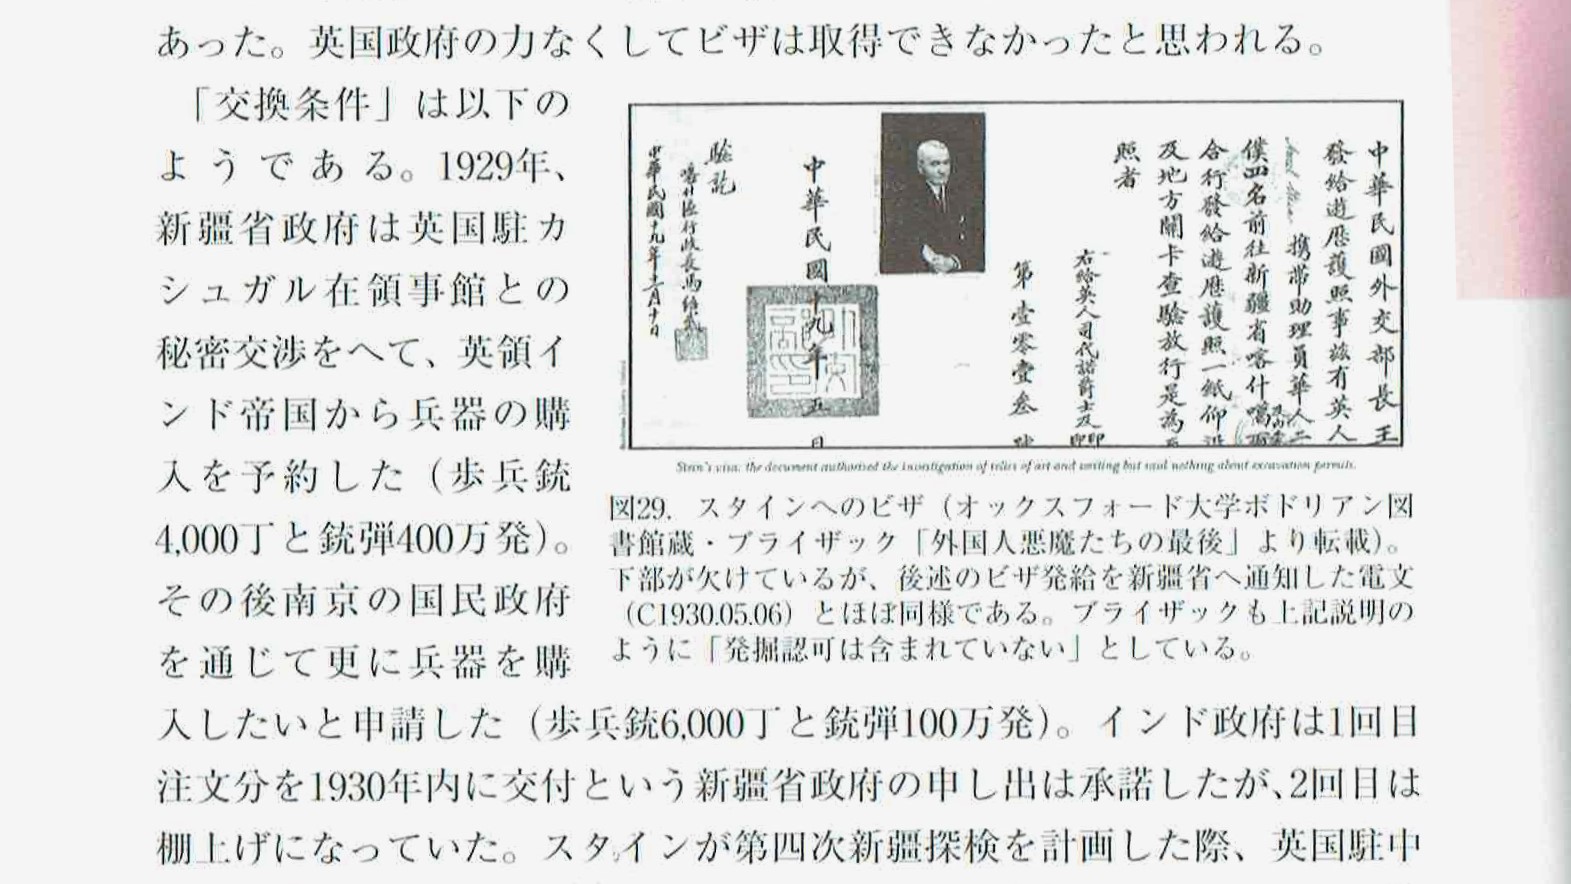 あった。英国政府の力なくしてビザは取得できなかったと思われる。
「交換条件」は以下の
ようである。1929年、
新疆省政府は英国駐カ
シュガル在領事館との
秘密交渉をへて、英領イ
ンド帝国から兵器の購
入を予約した（歩兵銃
4,000丁と銃弾400万発）。
その後南京の国民政府
を通じて更に兵器を購
入したいと申請した（歩兵銃6,000丁と銃弾100万発）。インド政府は1回目
注文分を1930年内に交付という新疆省政府の申し出は承諾したが、2回目は
棚上げになっていた。スタインが第四次新疆探検を計画した際、英国駐中
中華民國外交部長王
發給遊歷護照事茲有英人
携帶助理員華人二
僕四名前往新疆省喀什噶
合行發給遊歷護照一紙仰沿
及地方關卡查驗放行是為
照者
右給英人司代諾爵士
第壹零壹叁
中華民國十九年五 日
驗訖
喀什區行政長馬紹武
中華民國十九年十月十日
Stein's visa: the document authorised the investigation of relics of art and writing but said nothing about excavation permits.
図29. スタインへのビザ（オックスフォード大学ボドリアン図
書館蔵・ブライザック「外国人悪魔たちの最後」より転載）。
下部が欠けているが、後述のビザ発給を新疆省へ通知した電文
（C1930.05.06）とほぼ同様である。ブライザックも上記説明の
ように「発掘認可は含まれていない」としている。